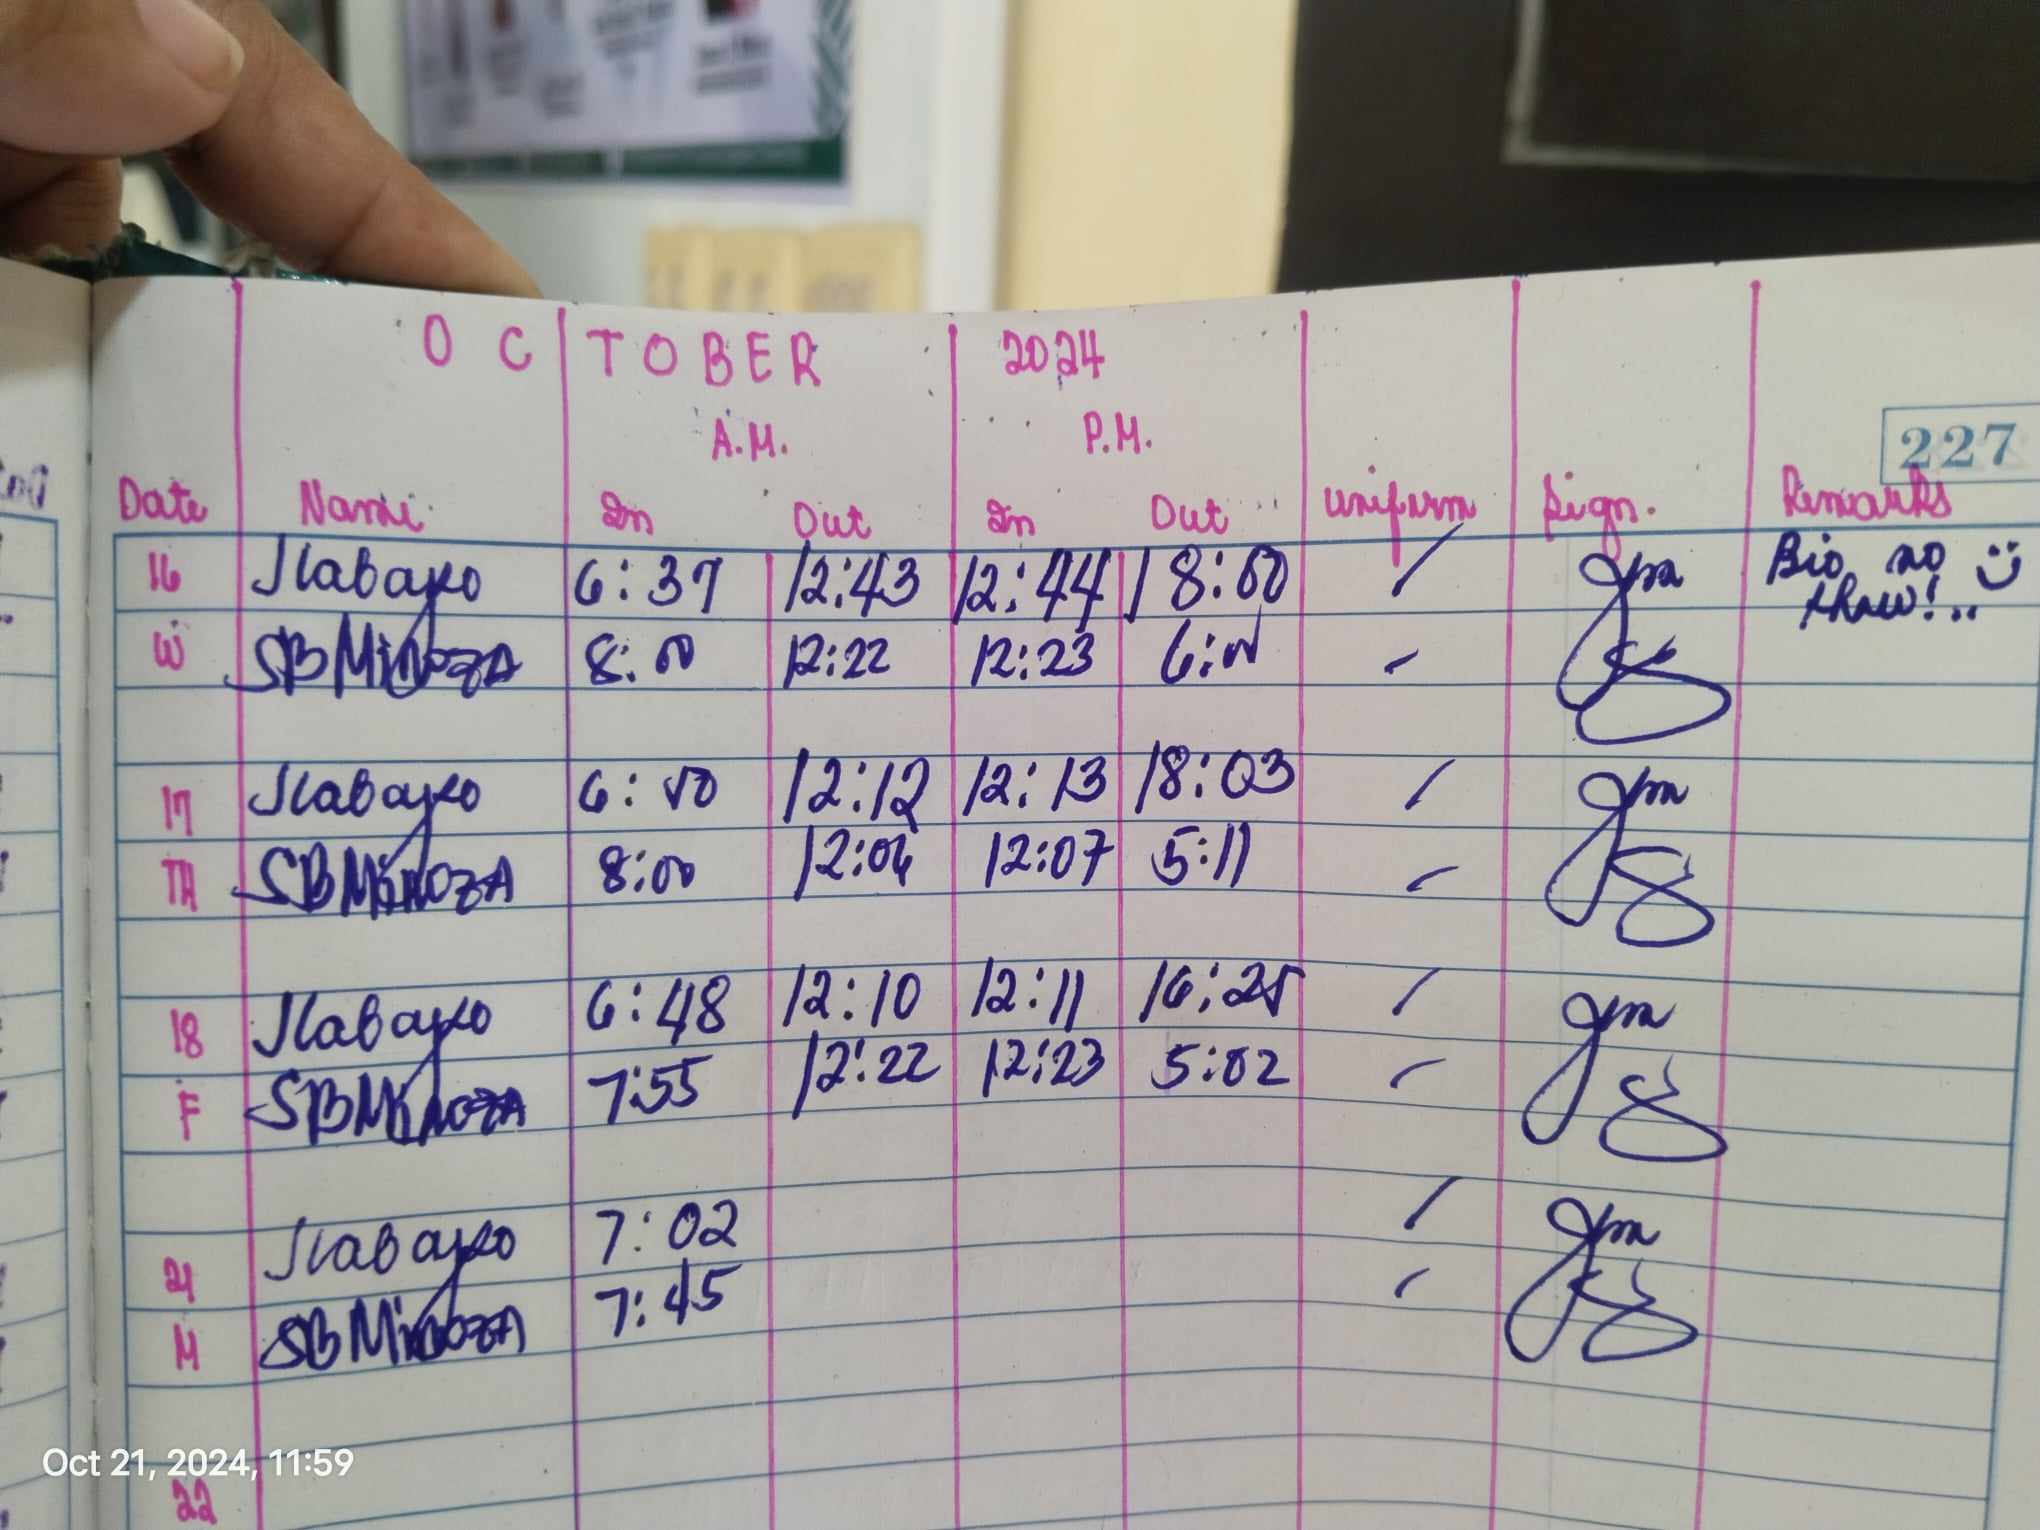 OCTOBER 2024
A.M. P.M.
227
Date Name In Out In Out Uniform Sign. Remarks
16 Jlabayo 6:37 12:43 12:44 18:00 / Bio no
thaw!..
W SBMiNOZA 8:00 12:22 12:23 6:00
17 Jlabayo 6:50 12:12 12:13 18:03 /
TH SBMiNOZA 8:00 12:06 12:07 5:11
18 Jlabayo 6:48 12:10 12:11 16:25 /
F SBMiNOZA 7:55 12:22 12:23 5:02
21 Jlabayo 7:02 /
M SBMiNOZA 7:45
22
Oct 21, 2024, 11:59